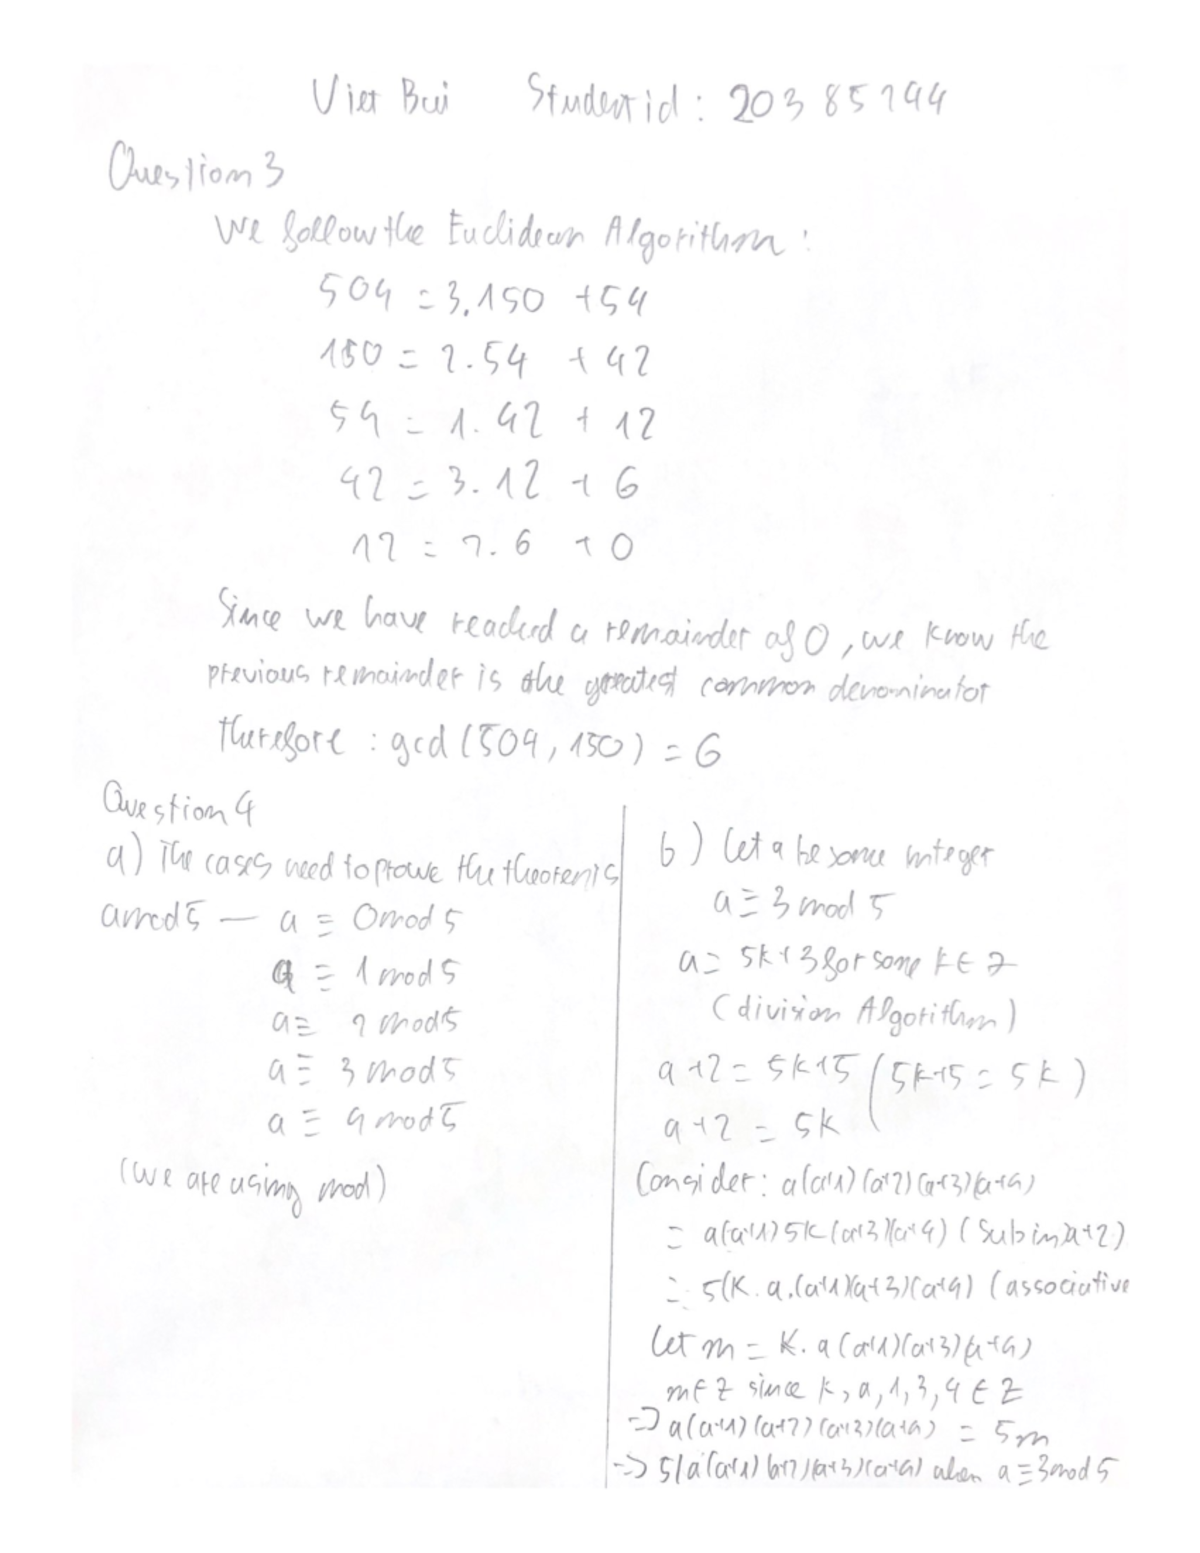 Viet Bui Student id: 20385294
Question 3
We follow the Euclidean Algorithm:
504 = 3.150 + 54
150 = 2.54 + 42
54 = 1.42 + 12
42 = 3.12 + 6
12 = 2.6 + 0
Since we have reached a remainder of 0, we know the
previous remainder is the greatest common denominator
therefore : gcd (504, 150) = 6
Question 4
a) The cases need to prove the theorem is
a mod 5 — a ≡ 0 mod 5
a ≡ 1 mod 5
a ≡ 2 mod 5
a ≡ 3 mod 5
a ≡ 4 mod 5
(we are using mod)
b) Let a be some integer
a ≡ 3 mod 5
a = 5k+3 for some k ∈ Z
(division Algorithm)
a+2 = 5k+5 (5k+5 = 5k)
a+2 = 5k
Consider: a(a+1)(a+2)(a+3)(a+4)
= a(a+1)5k(a+3)(a+4) (Sub in a+2)
= 5(k.a.(a+1)(a+3)(a+4) (associative
let m = k.a(a+1)(a+3)(a+4)
m ∈ Z since k, a, 1, 3, 4 ∈ Z
=> a(a+1)(a+2)(a+3)(a+4) = 5m
=> 5|a(a+1)(a+2)(a+3)(a+4) when a ≡ 3 mod 5